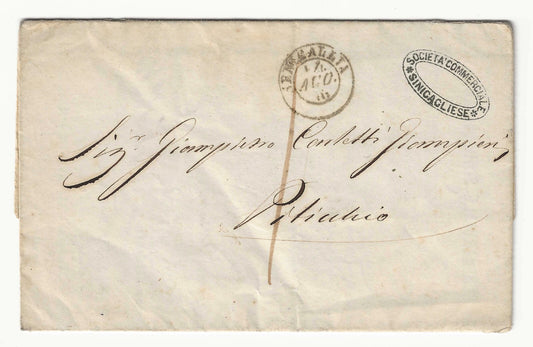 SENIGALLIA
AGO.
SOCIETA' COMMERCIALE
SINIGAGLIESE
Sigr. Giampiero Contelli Giampieri,
Piticchio